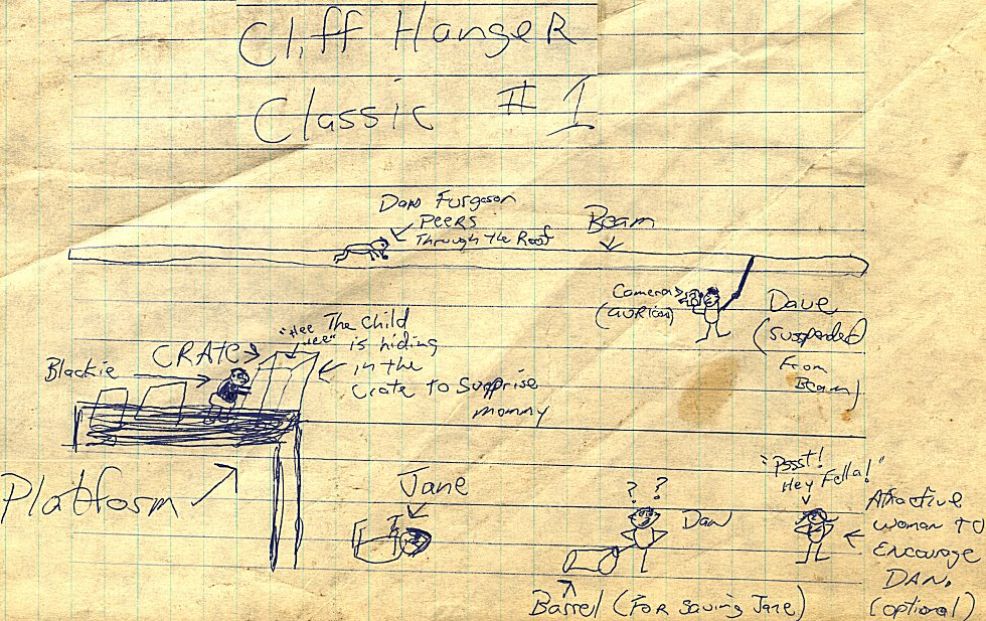 Cliff Hanger
Classic # 1
Dan Furgeson
Peers
Through the Roof
Beam
Camera
Dave
(suspended
From
Beam)
"Hee
Hee"
The child
is hiding
in the
crate to surprise
mommy
CRATE
Blackie
Platform
Jane
? ?
Dan
"Pssst!
Hey Fella!"
Attractive
woman to
Encourage
DAN.
(optional)
Barrel (For saving Jane)